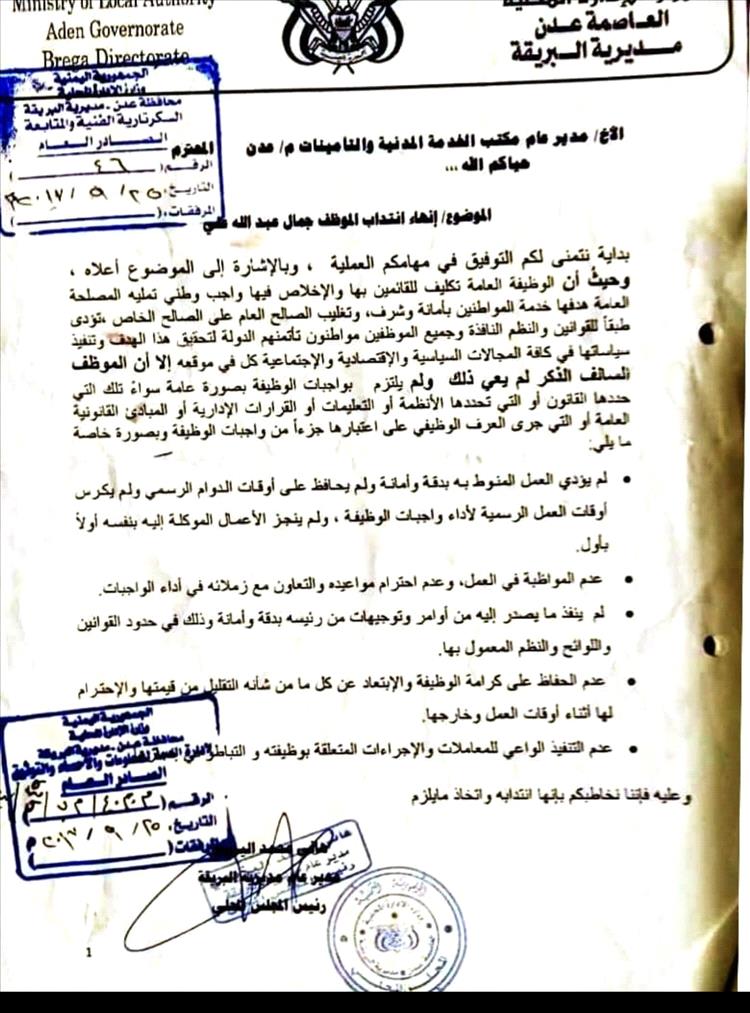 Ministry of Local Authority
Aden Governorate
Brega Directorate
العاصمة عدن
مديرية البريقة
الجمهورية اليمنية
وزارة الإدارة المحلية
محافظة عدن - مديرية البريقة
السكرتارية الفنية والمتابعة
الصادر العام
الرقم: ( ٤٦ )
التاريخ: ٢٥ / ٩ / ٢٠١٧م
المرفقات: ( )
الأخ/ مدير عام مكتب الخدمة المدنية والتامينات م/ عدن المحترم
حياكم الله ...
الموضوع/ إنهاء انتداب الموظف جمال عبد الله علي
بداية نتمنى لكم التوفيق في مهامكم العملية ، وبالإشارة إلى الموضوع أعلاه ،
وحيثُ أن الوظيفة العامة تكليف للقائمين بها والإخلاص فيها واجب وطني تمليه المصلحة
العامة هدفها خدمة المواطنين بأمانة وشرف، وتغليب الصالح العام على الصالح الخاص ،تؤدى
طبقاً للقوانين والنظم النافذة وجميع الموظفين مواطنون تأتمنهم الدولة لتحقيق هذا الهدف وتنفيذ
سياساتها في كافة المجالات السياسية والإقتصادية والإجتماعية كل في موقعه إلا أن الموظف
السالف الذكر لم يعي ذلك ولم يلتزم بواجبات الوظيفة بصورة عامة سواءً تلك التي
حددها القانون أو التي تحددها الأنظمة أو التعليمات أو القرارات الإدارية أو المبادئ القانونية
العامة أو التي جرى العرف الوظيفي على اعتبارها جزءاً من واجبات الوظيفة وبصورة خاصة
ما يلي:
• لم يؤدي العمل المنوط به بدقة وأمانة ولم يحافظ على أوقات الدوام الرسمي ولم يكرس
أوقات العمل الرسمية لأداء واجبات الوظيفة ، ولم ينجز الأعمال الموكلة إليه بنفسه أولاً
بأول.
• عدم المواظبة في العمل، وعدم احترام مواعيده والتعاون مع زملائه في أداء الواجبات.
• لم ينفذ ما يصدر إليه من أوامر وتوجيهات من رئيسه بدقة وأمانة وذلك في حدود القوانين
واللوائح والنظم المعمول بها.
• عدم الحفاظ على كرامة الوظيفة والإبتعاد عن كل ما من شأنه التقليل من قيمتها والإحترام
لها أثناء أوقات العمل وخارجها.
• عدم التنفيذ الواعي للمعاملات والإجراءات المتعلقة بوظيفته و
وعليه فإننا نخاطبكم بإنها انتدابه واتخاذ مايلزم
الجمهورية اليمنية
وزارة الإدارة المحلية
محافظة عدن - مديرية البريقة
الصادر العام
الرقم: (
التاريخ: ٢٥ / ٩ / ٢٠١٧م
المرفقات: ( )
هاني محمد
مدير عام مديرية البريقة
رئيس المجلس المحلي
1